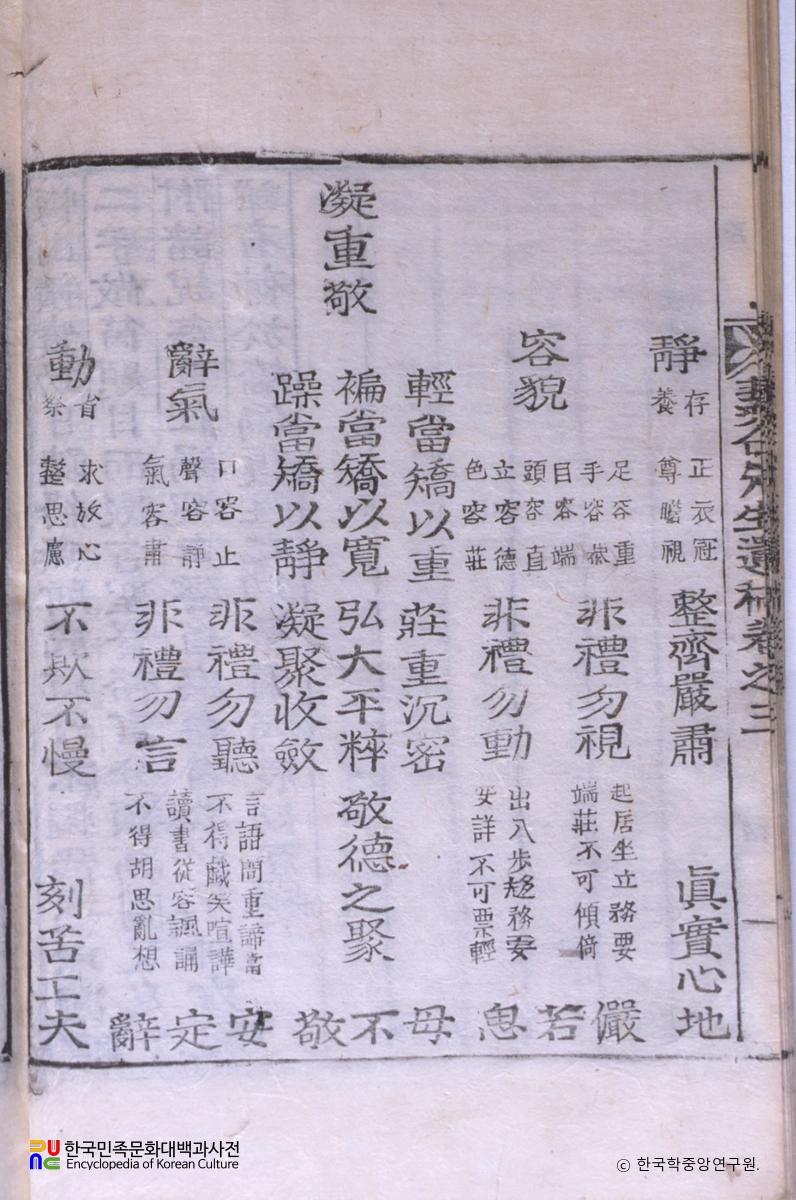 先生遺稿卷之三
靜
存養
正衣冠
尊瞻視
整齊嚴肅
眞實心地
容貌
足容重
手容恭
目容端
頭容直
立容德
色容莊
非禮勿視
非禮勿動
起居坐立務要
端莊不可傾倚
出入步趍務要
安詳不可票輕
儼若思
凝重敬
輕當矯以重
莊重沉密
褊當矯以寬
弘大平粹
躁當矯以靜
凝聚收斂
敬德之聚
毋不敬
辭氣
口容止
聲容靜
氣容肅
非禮勿聽
非禮勿言
言語間重諦當
不得戲笑喧譁
讀書從容諷誦
不得胡思亂想
安定辭
動
省察
求放心
整思慮
不欺不慢
刻苦工夫
한국민족문화대백과사전
Encyclopedia of Korean Culture
© 한국학중앙연구원.